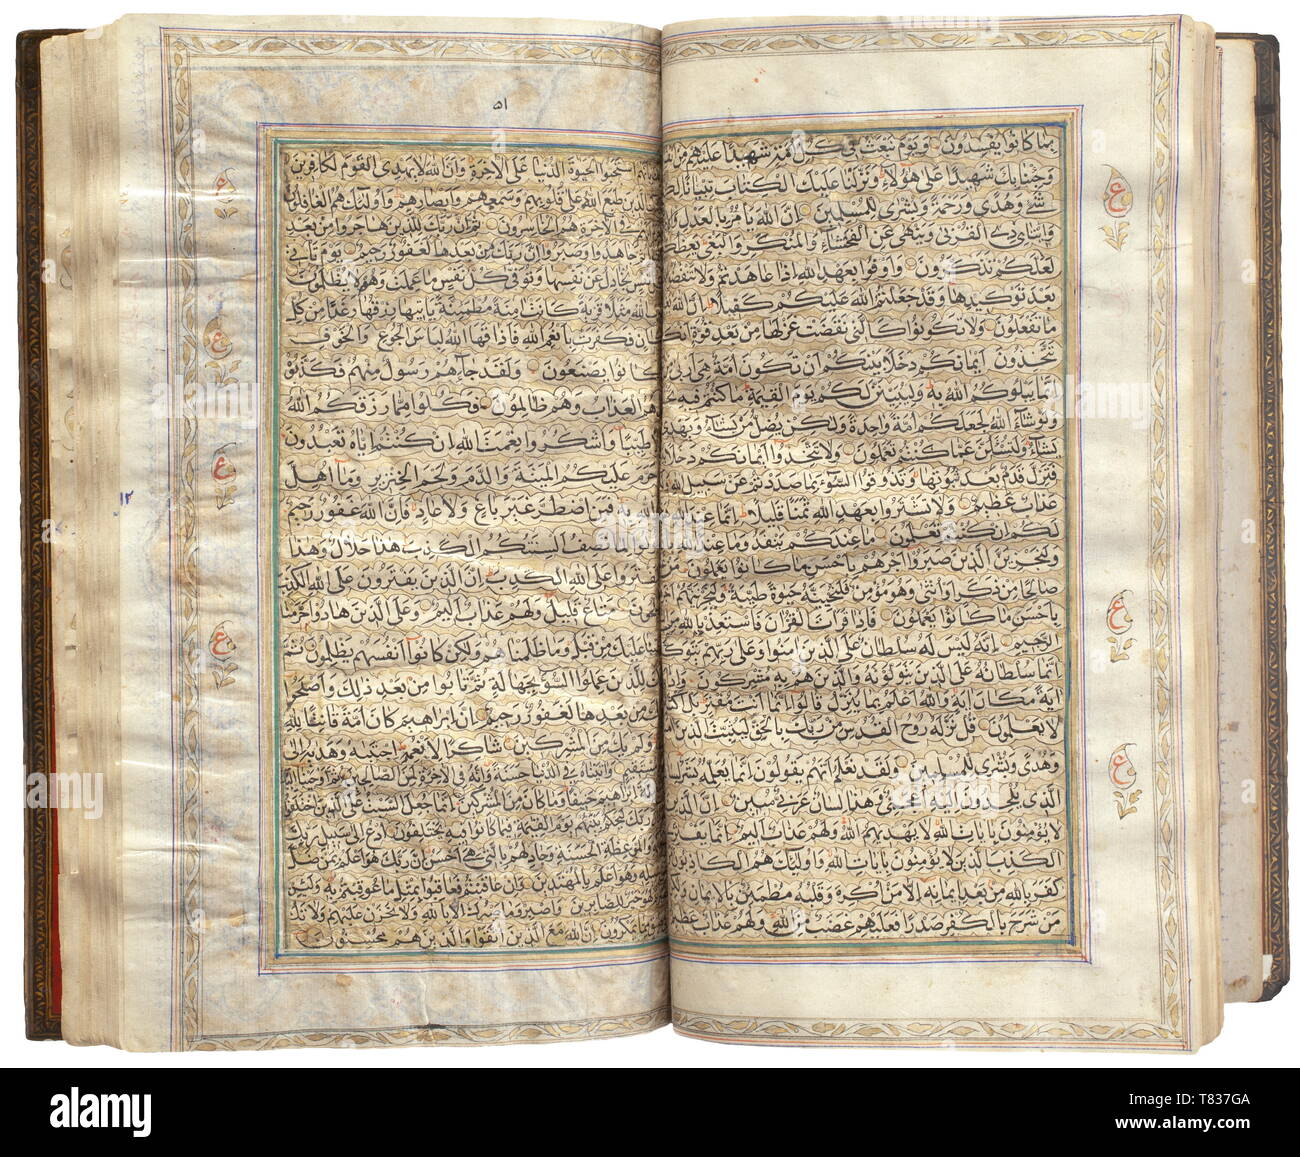 بما كانوا يفسدون ويوم نبعث في كل امة شهيدا عليهم من
وجئنا بك شهيدا على هؤلاء ونزلنا عليك الكتاب تبيانا لكل
شئ وهدى ورحمة وبشرى للمسلمين ان الله يامر بالعدل
وايتاى ذى القربى وينهى عن الفحشاء والمنكر والبغى يعظكم
لعلكم تذكرون واوفوا بعهد الله اذا عاهدتم ولا تنقضوا
بعد توكيدها وقد جعلتم الله عليكم كفيلا ان الله
ما تفعلون ولا تكونوا كالتى نقضت غزلها من بعد قوة
تتخذون ايمانكم دخلا بينكم ان تكون امة هى اربى
انما يبلوكم الله به وليبينن لكم يوم القيمة ما كنتم فيه
ولو شاء الله لجعلكم امة واحدة ولكن يضل من يشاء ويهدى
يشاء ولتسئلن عما كنتم تعملون ولا تتخذوا ايمانكم دخلا
فتزل قدم بعد ثبوتها وتذوقوا السوء بما صددتم عن سبيل الله
عذاب عظيم ولا تشتروا بعهد الله ثمنا قليلا انما عند
لكم ان كنتم تعلمون ما عندكم ينفد وما عند
ليجزين الذين صبروا اجرهم باحسن ما كانوا يعملون
صالحا من ذكر او انثى وهو مؤمن فلنحيينه حيوة طيبة ولنجزينهم
باحسن ما كانوا يعملون فاذا قرات القران فاستعذ بالله
الرجيم انه ليس له سلطان على الذين امنوا وعلى ربهم يتوكلون
انما سلطانه على الذين يتولونه والذين هم به مشركون
اية مكان اية والله اعلم بما ينزل قالوا انما انت مفتر بل
لا يعلمون قل نزله روح القدس من ربك بالحق ليثبت الذين
وهدى وبشرى للمسلمين ولقد نعلم انهم يقولون انما يعلمه بشر
الذى يلحدون اليه اعجمى وهذا لسان عربى مبين ان الذين
لا يؤمنون بايات الله لا يهديهم الله ولهم عذاب اليم انما يفترى
الكذب الذين لا يؤمنون بايات الله واولئك هم الكاذبون
كفر بالله من بعد ايمانه الا من اكره وقلبه مطمئن بالايمان
من شرح بالكفر صدرا فعليهم غضب من الله ولهم عذاب عظيم
٥١
بانهم استحبوا الحيوة الدنيا على الاخرة وان الله لا يهدى القوم الكافرين
الذين طبع الله على قلوبهم وسمعهم وابصارهم واولئك هم الغافلون
فى الاخرة هم الخاسرون ثم ان ربك للذين هاجروا من بعد
جاهدوا وصبروا ان ربك من بعدها لغفور رحيم يوم تاتى
نفس تجادل عن نفسها وتوفى كل نفس ما عملت وهم لا يظلمون
الله مثلا قرية كانت امنة مطمئنة ياتيها رزقها رغدا من كل
مكان فكفرت بانعم الله فاذاقها الله لباس الجوع والخوف
كانوا يصنعون ولقد جاءهم رسول منهم فكذبوه
العذاب وهم ظالمون فكلوا مما رزقكم الله
طيبا واشكروا نعمت الله ان كنتم اياه تعبدون
حرم عليكم الميتة والدم ولحم الخنزير وما اهل
الله به فمن اضطر غير باغ ولا عاد فان الله غفور رحيم
تقولوا لما تصف السنتكم الكذب هذا حلال وهذا
لتفتروا على الله الكذب ان الذين يفترون على الله الكذب
متاع قليل ولهم عذاب اليم وعلى الذين هادوا حرمنا
عليك من قبل وما ظلمناهم ولكن كانوا انفسهم يظلمون
للذين عملوا السوء بجهالة ثم تابوا من بعد ذلك واصلحوا
من بعدها لغفور رحيم ان ابرهيم كان امة قانتا لله
ولم يك من المشركين شاكرا لانعمه اجتبه وهديه الى
واتيناه فى الدنيا حسنة وانه فى الاخرة لمن الصالحين
ابرهيم حنيفا وما كان من المشركين انما جعل السبت على الذين
ربك ليحكم بينهم يوم القيمة فيما كانوا فيه يختلفون ادع الى سبيل ربك
والموعظة الحسنة وجادلهم بالتى هى احسن ان ربك هو اعلم بمن ضل
وهو اعلم بالمهتدين وان عاقبتم فعاقبوا بمثل ما عوقبتم به ولئن
خير للصابرين واصبر وما صبرك الا بالله ولا تحزن عليهم ولا تك
يمكرون ان الله مع الذين اتقوا والذين هم محسنون
ع
ع
ع
ع
ع
ع
ع
alamy
Image ID: T837GA
www.alamy.com